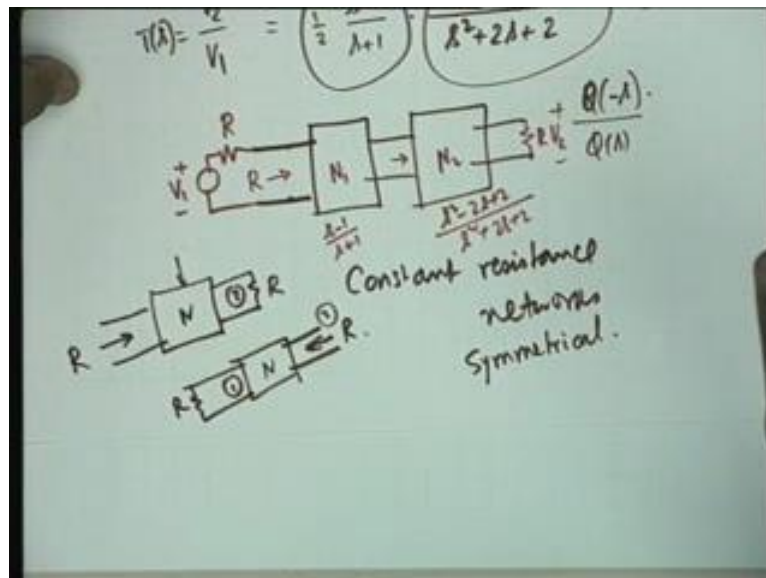 T(s) = V2/V1 = (1/2 · s-1/s+1) · /s²+2s+2
R
+ V1 -
R →
N1
→
N2
R
+ V2 -
Q(-s)/Q(s)
s-1/s+1
s²-2s+2/s²+2s+2
Constant resistance
networks
Symmetrical.
R →
N
②
R
R
①
N
②
← R.